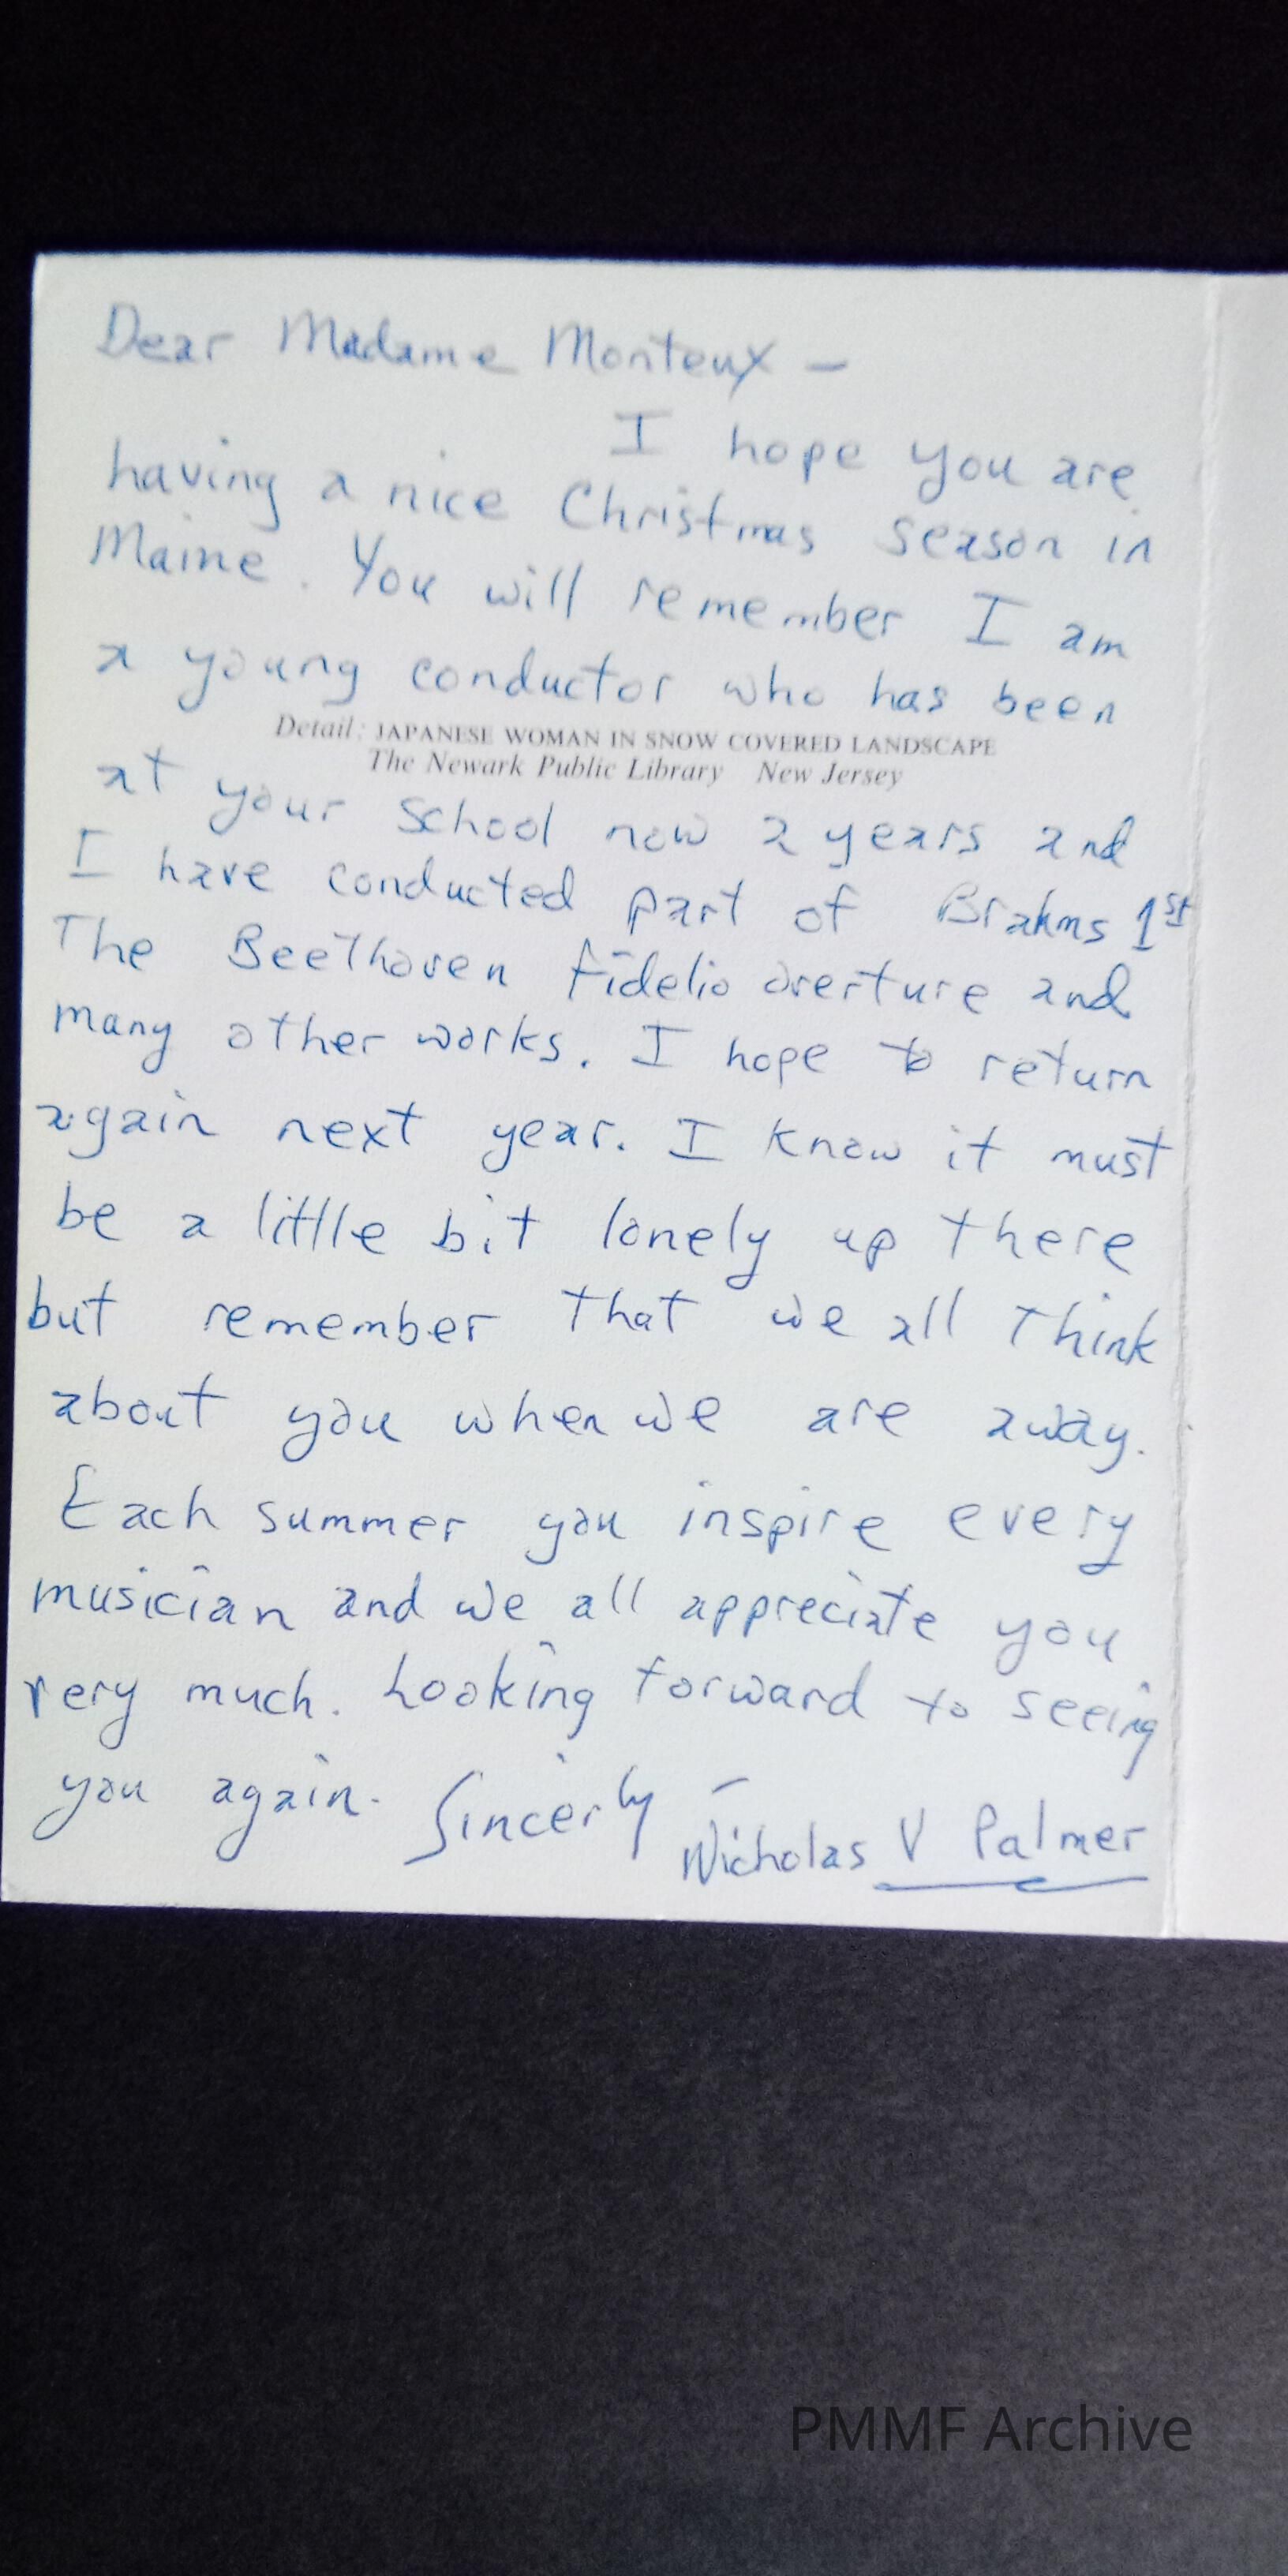 Dear Madame Monteux –
I hope you are
having a nice Christmas season in
Maine. You will remember I am
a young conductor who has been
Detail: JAPANESE WOMAN IN SNOW COVERED LANDSCAPE
The Newark Public Library New Jersey
at your school now 2 years and
I have conducted part of Brahms 1st
The Beethoven Fidelio overture and
many other works. I hope to return
again next year. I know it must
be a little bit lonely up there
but remember that we all think
about you when we are away.
Each summer you inspire every
musician and we all appreciate you
very much. Looking forward to seeing
you again. Sincerly –
Nicholas V Palmer
PMMF Archive